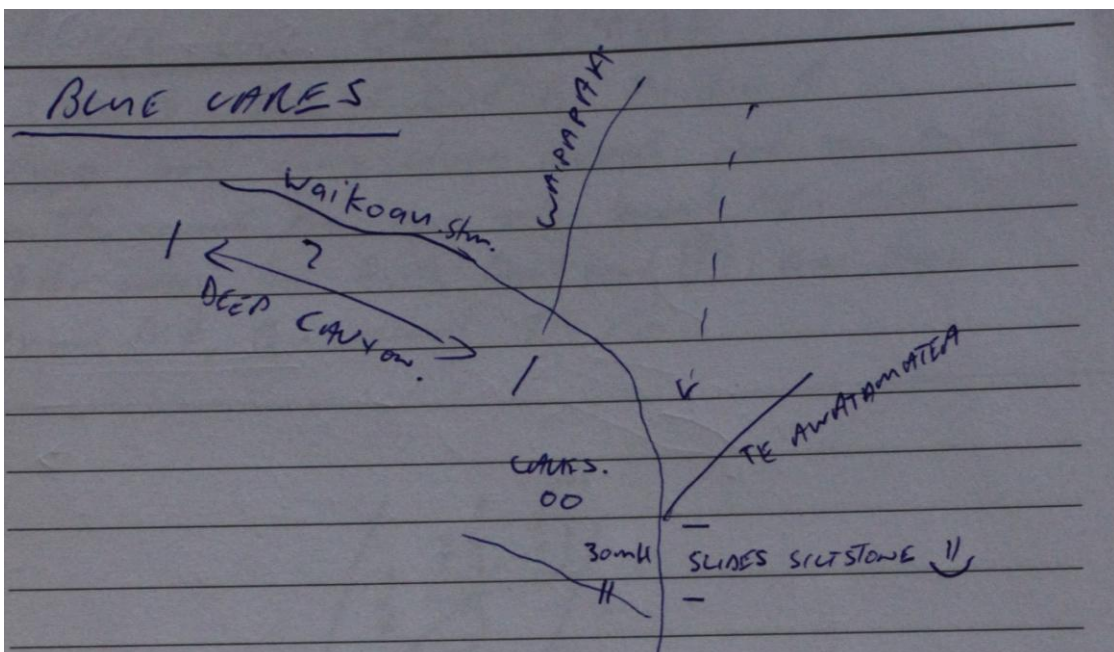 BLUE CAVES
WAIPAPAKA
Waikoau Stm.
?
DEEP CANYON.
TE AWATAMATEA
CAVES.
30mH
SLIDES SILTSTONE